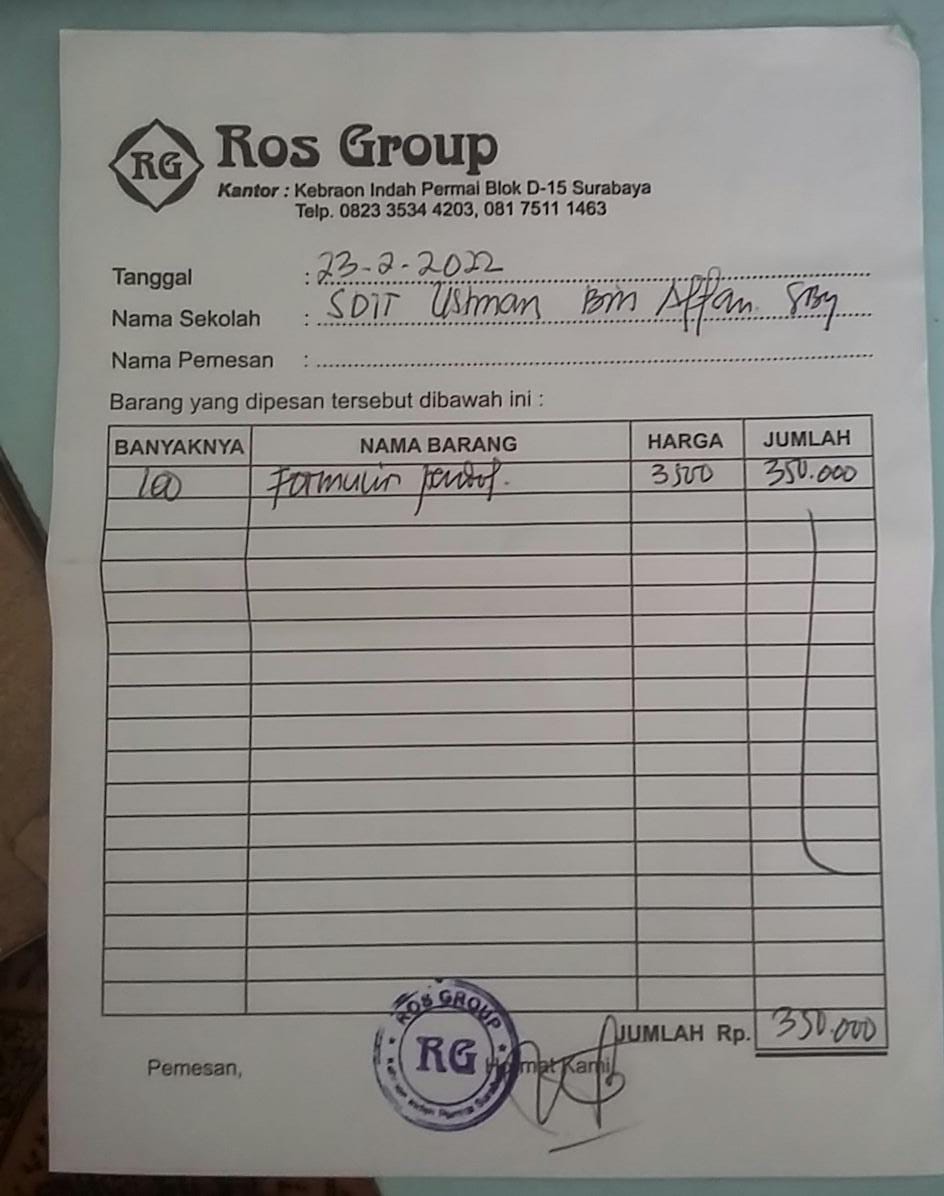 RG Ros Group
Kantor : Kebraon Indah Permai Blok D-15 Surabaya
Telp. 0823 3534 4203, 081 7511 1463
Tanggal : 23-2-2022
Nama Sekolah : SDIT Ustman Bin Affan SBy
Nama Pemesan :
Barang yang dipesan tersebut dibawah ini :
BANYAKNYA NAMA BARANG HARGA JUMLAH
100 Formulir 3500 350.000
JUMLAH Rp. 350.000
Pemesan, Hormat Kami
ROS GROUP
RG
Kebraon Indah Permai Surabaya